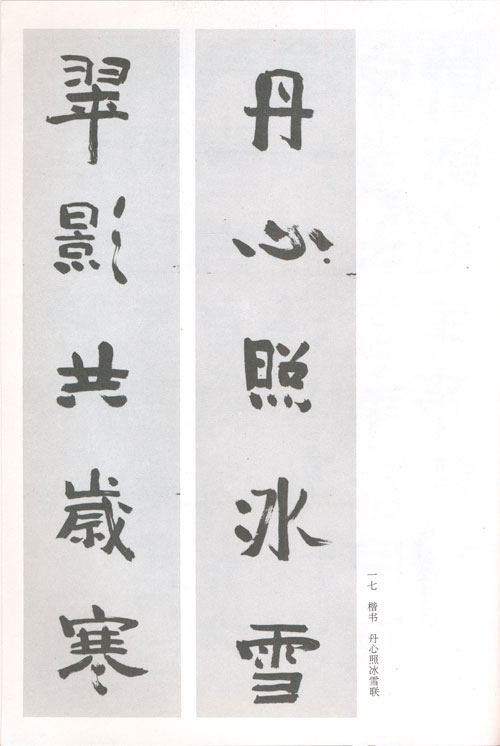 丹心照冰雪
翠影共歲寒
一七 楷书 丹心照冰雪联